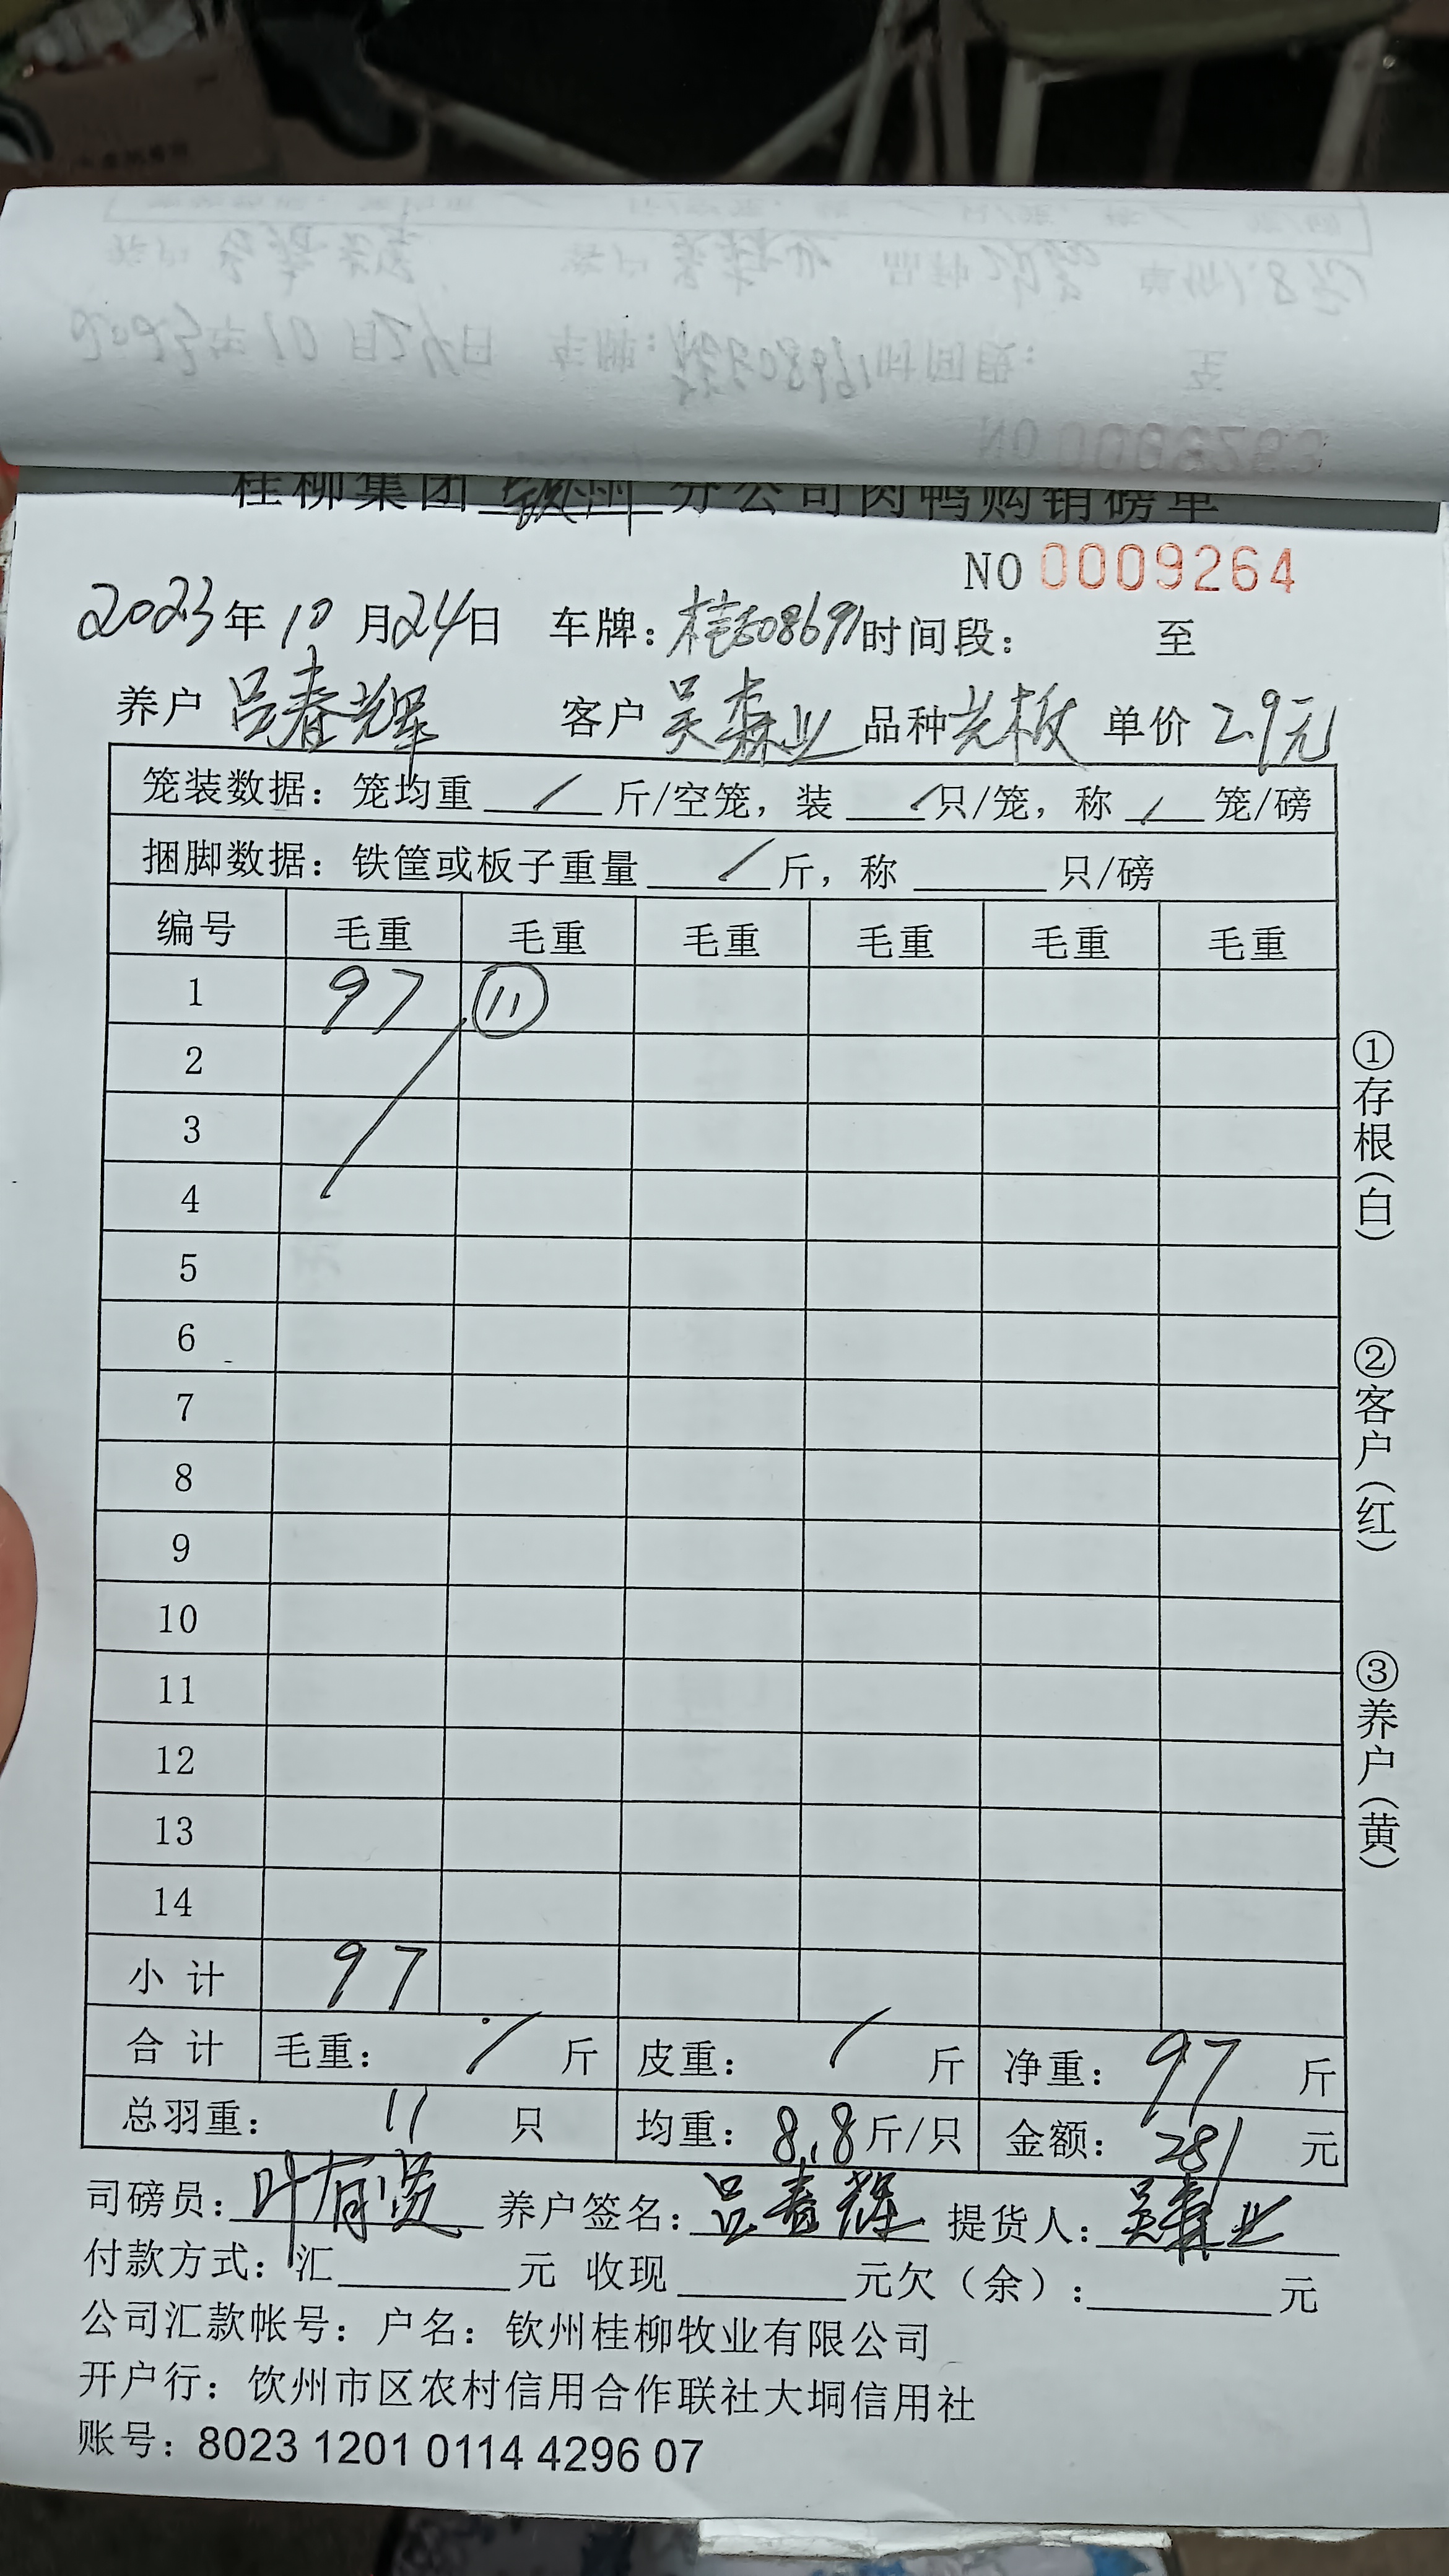 桂柳集团 钦州 分公司肉鸭购销磅单
NO 0009264
2023年10月24日 车牌：桂E08691 时间段： 至
养户 吕春辉 客户 吴森业 品种 光板 单价 2.9元
笼装数据：笼均重 / 斤/空笼，装 / 只/笼，称 / 笼/磅
捆脚数据：铁筐或板子重量 / 斤，称 只/磅
编号 毛重 毛重 毛重 毛重 毛重 毛重
1 97 ⑪
2
3
4
5
6
7
8
9
10
11
12
13
14
小计 97
合计 毛重： / 斤 皮重： / 斤 净重： 97 斤
总羽重： 11 只 均重： 8.8 斤/只 金额： 281 元
司磅员： 叶有贤 养户签名： 吕春辉 提货人： 吴森业
付款方式：汇 元 收现 元欠（余）： 元
公司汇款帐号：户名：钦州桂柳牧业有限公司
开户行：饮州市区农村信用合作联社大垌信用社
账号：8023 1201 0114 4296 07
①存根（白）
②客户（红）
③养户（黄）